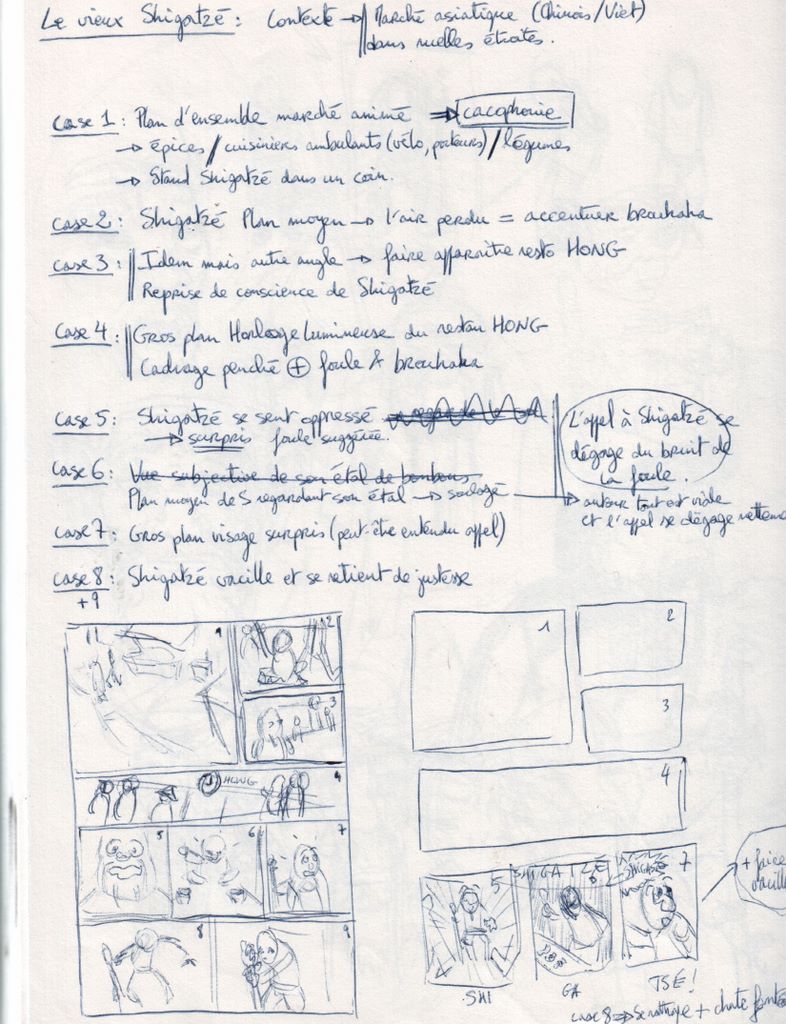 Le vieux Shigatzé : Contexte → Marché asiatique (Chinois/Viet)
dans ruelles étroites.
case 1 : Plan d'ensemble marché animé ⇒ cacophonie
→ épices / cuisiniers ambulants (vélo, porteurs) / légumes
→ Stand Shigatzé dans un coin.
case 2 : Shigatzé Plan moyen → l'air perdu = accentuer brouhaha
case 3 : Idem mais autre angle → faire apparaître resto HONG
Reprise de conscience de Shigatzé
case 4 : Gros plan Horloge Lumineuse du restau HONG
Cadrage penché ⊕ foule & brouhaha
case 5 : Shigatzé se sent oppressé
→ surpris foule suggérée.
L'appel à Shigatzé se
dégage du bruit de
la foule.
case 6 : Vue subjective de son étal de bonbons
Plan moyen de S regardant son étal → soulagé → autour tout est vide
et l'appel se dégage nettement
case 7 : Gros plan visage surpris (peut-être entendu appel)
case 8 : Shigatzé vacille et se retient de justesse
+9
1 2
3
HONG 4
5 6 7
8 9
1 2
3
4
5 SHI GA TZÉ 7
+ faire
vacille
SHI GA TSÉ !
case 8 ⇒ + chute